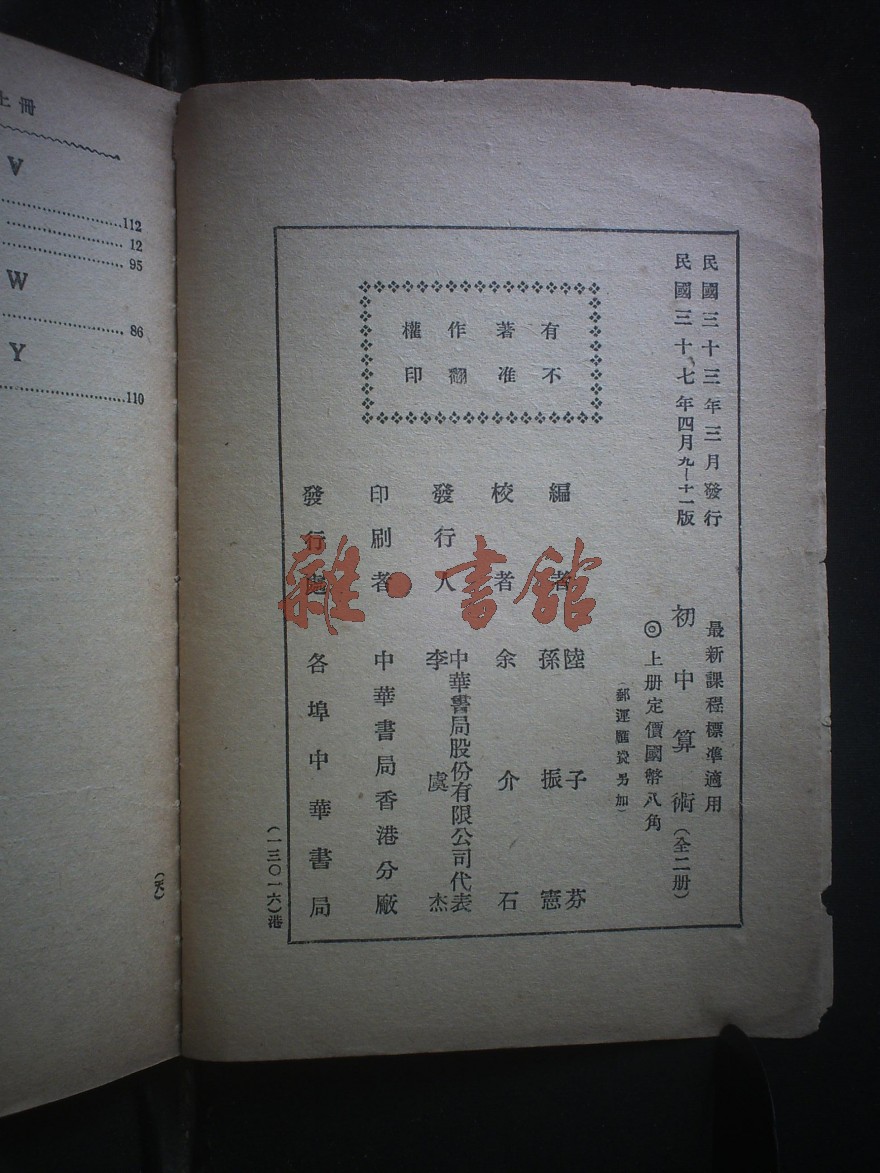 民國三十三年三月發行
民國三十七年四月九—十一版
最新課程標準適用
初中算術(全二册)
◎上册定價國幣八角
(郵運匯費另加)
有著作權
不准翻印
編者 陸子芬
孫振憲
校者 余介石
發行人 中華書局股份有限公司代表
李虞杰
印刷者 中華書局香港分廠
發行處 各埠中華書局
(一三〇一六)港
雜·書館
上冊
V
112
12
95
W
86
Y
110